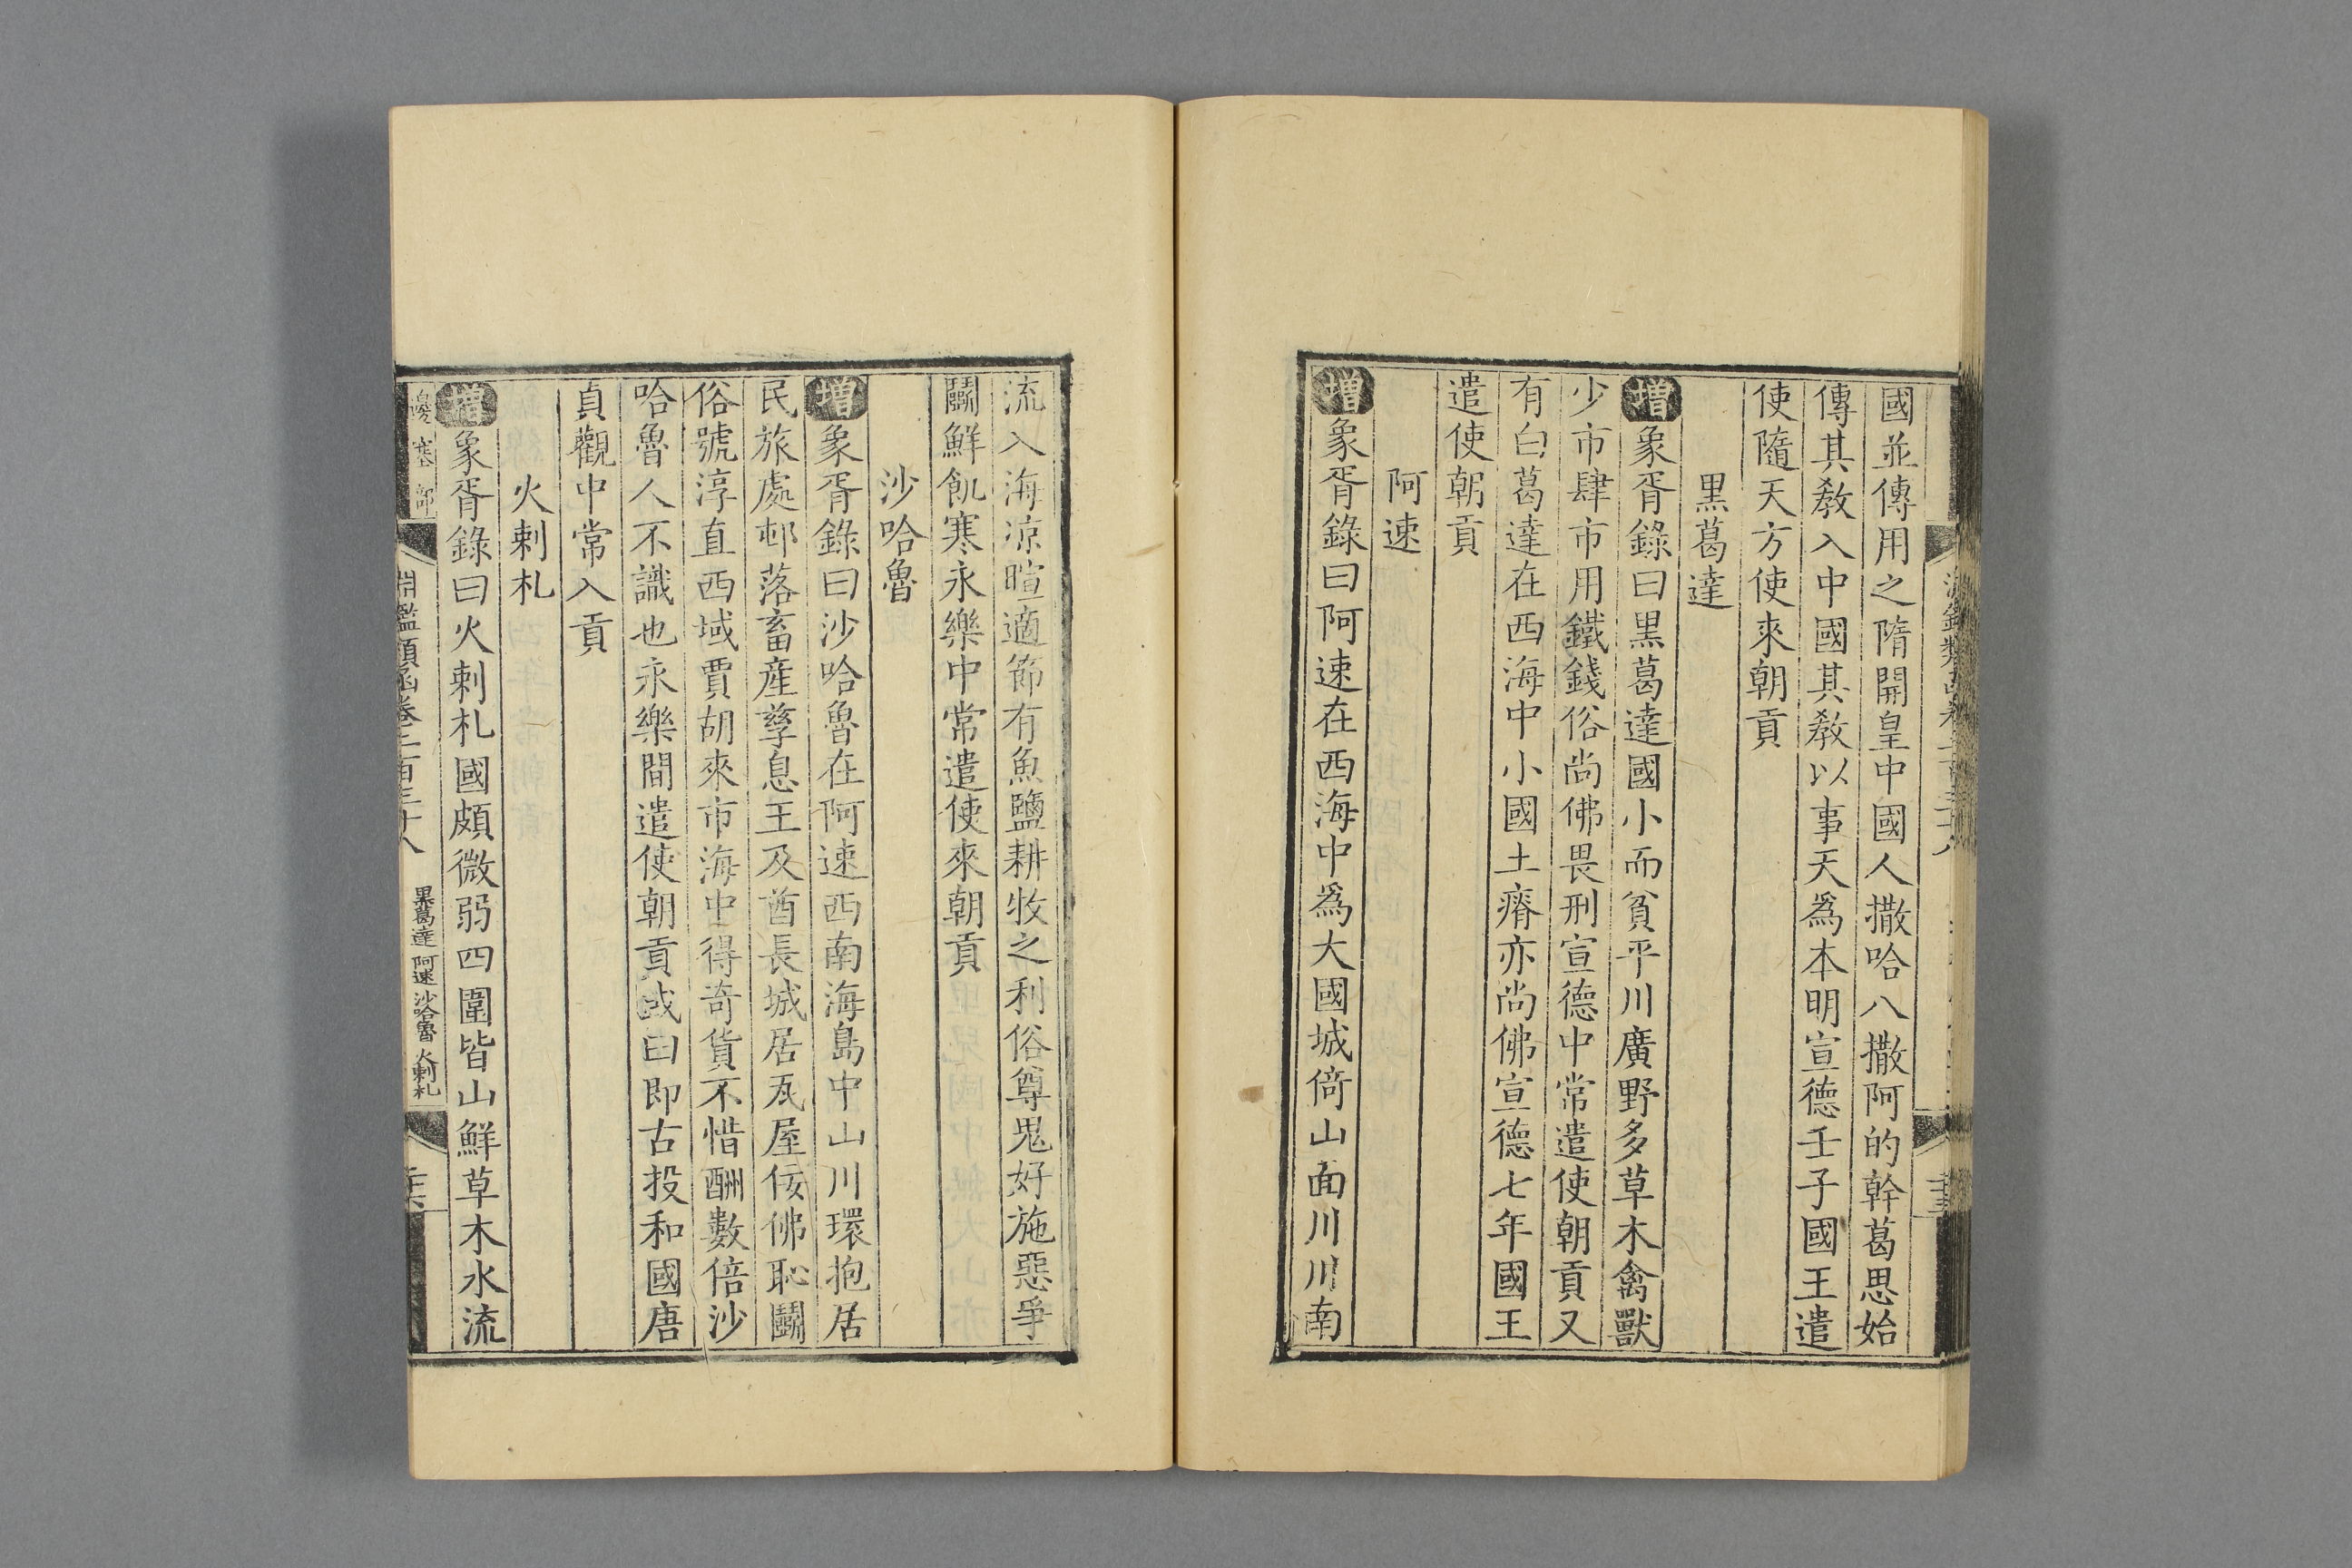 國並傳用之隋開皇中國人撒哈八撒阿的幹葛思始
傳其教入中國其教以事天爲本明宣德壬子國王遣
使隨天方使來朝貢
黒葛達
增象胥錄曰黒葛達國小而貧平川廣野多草木禽獸
少市肆市用鐵錢俗尚佛畏刑宣德中常遣使朝貢又
有白葛達在西海中小國土瘠亦尚佛宣德七年國王
遣使朝貢
阿速
增象胥錄曰阿速在西海中爲大國城倚山面川川南
流入海凉暄適節有魚鹽耕牧之利俗尊鬼好施惡爭
鬬鮮飢寒永樂中常遣使來朝貢
沙哈魯
增象胥錄曰沙哈魯在阿速西南海島中山川環抱居
民旅處邨落畜産孳息王及酋長城居瓦屋佞佛恥鬬
俗號淳直西域賈胡來市海中得奇貨不惜酬數倍沙
哈魯人不識也永樂間遣使朝貢或曰即古投和國唐
貞觀中常入貢
火剌札
增象胥錄曰火剌札國頗微弱四圍皆山鮮草木水流
邊塞部
淵鑑類函卷二百三十八
黒葛達 阿速 沙哈魯 火剌札